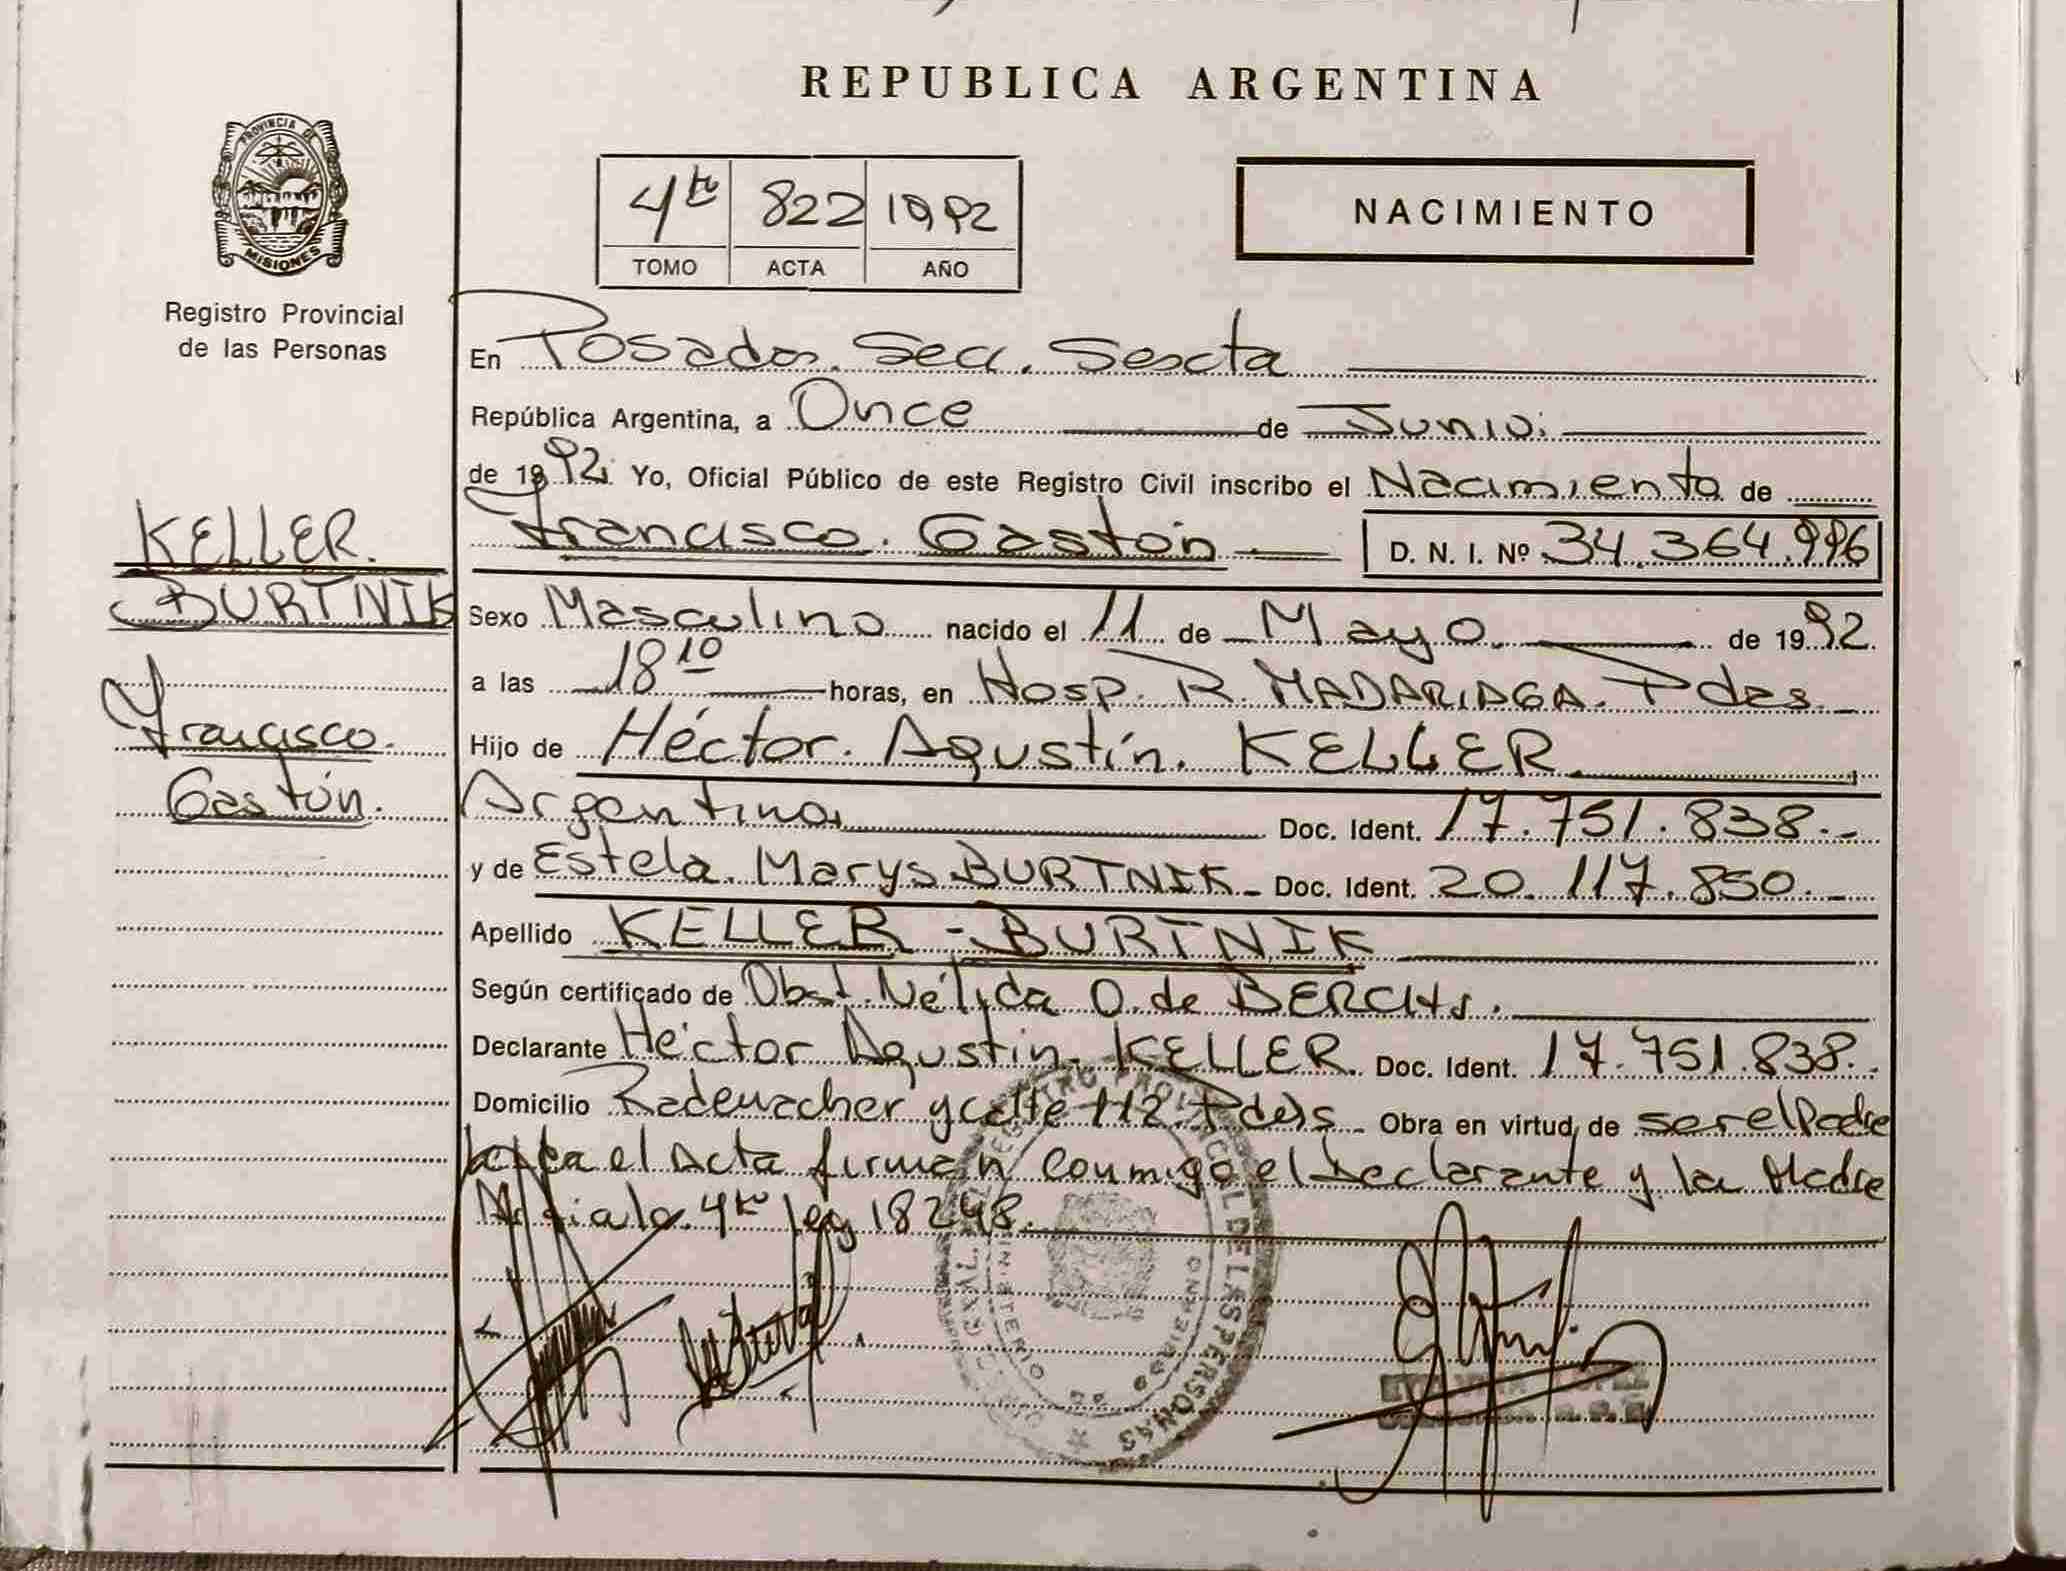 REPUBLICA ARGENTINA
PROVINCIA DE
MISIONES
Registro Provincial
de las Personas
4to 822 1992
TOMO ACTA AÑO
NACIMIENTO
En Posadas. Secc. Sexta
República Argentina, a Once de Junio.
de 1992. Yo, Oficial Público de este Registro Civil inscribo el Nacimiento de
Francisco. Gastón D. N. I. Nº 34.364.996
KELLER.
BURTNIK
Francisco.
Gastón.
Sexo Masculino nacido el 11 de Mayo de 1992.
a las 18 10 horas, en Hosp. R. MADARIAGA. Pdas.
Hijo de Héctor. Agustín. KELLER
Argentino Doc. Ident. 17.751.838.-
y de Estela. Marys BURTNIK- Doc. Ident. 20.117.850.-
Apellido KELLER - BURTNIK
Según certificado de Obst. Nélida O. de
Declarante Héctor Agustín. KELLER. Doc. Ident. 17.751.838.
Domicilio y calle 112. Pdas. Obra en virtud de ser el Padre
el Acta firman conmigo el Declarante y la Madre
4to ley 18248.
REGISTRO PROVINCIAL DE LAS PERSONAS
MINISTERIO DE GOBIERNO